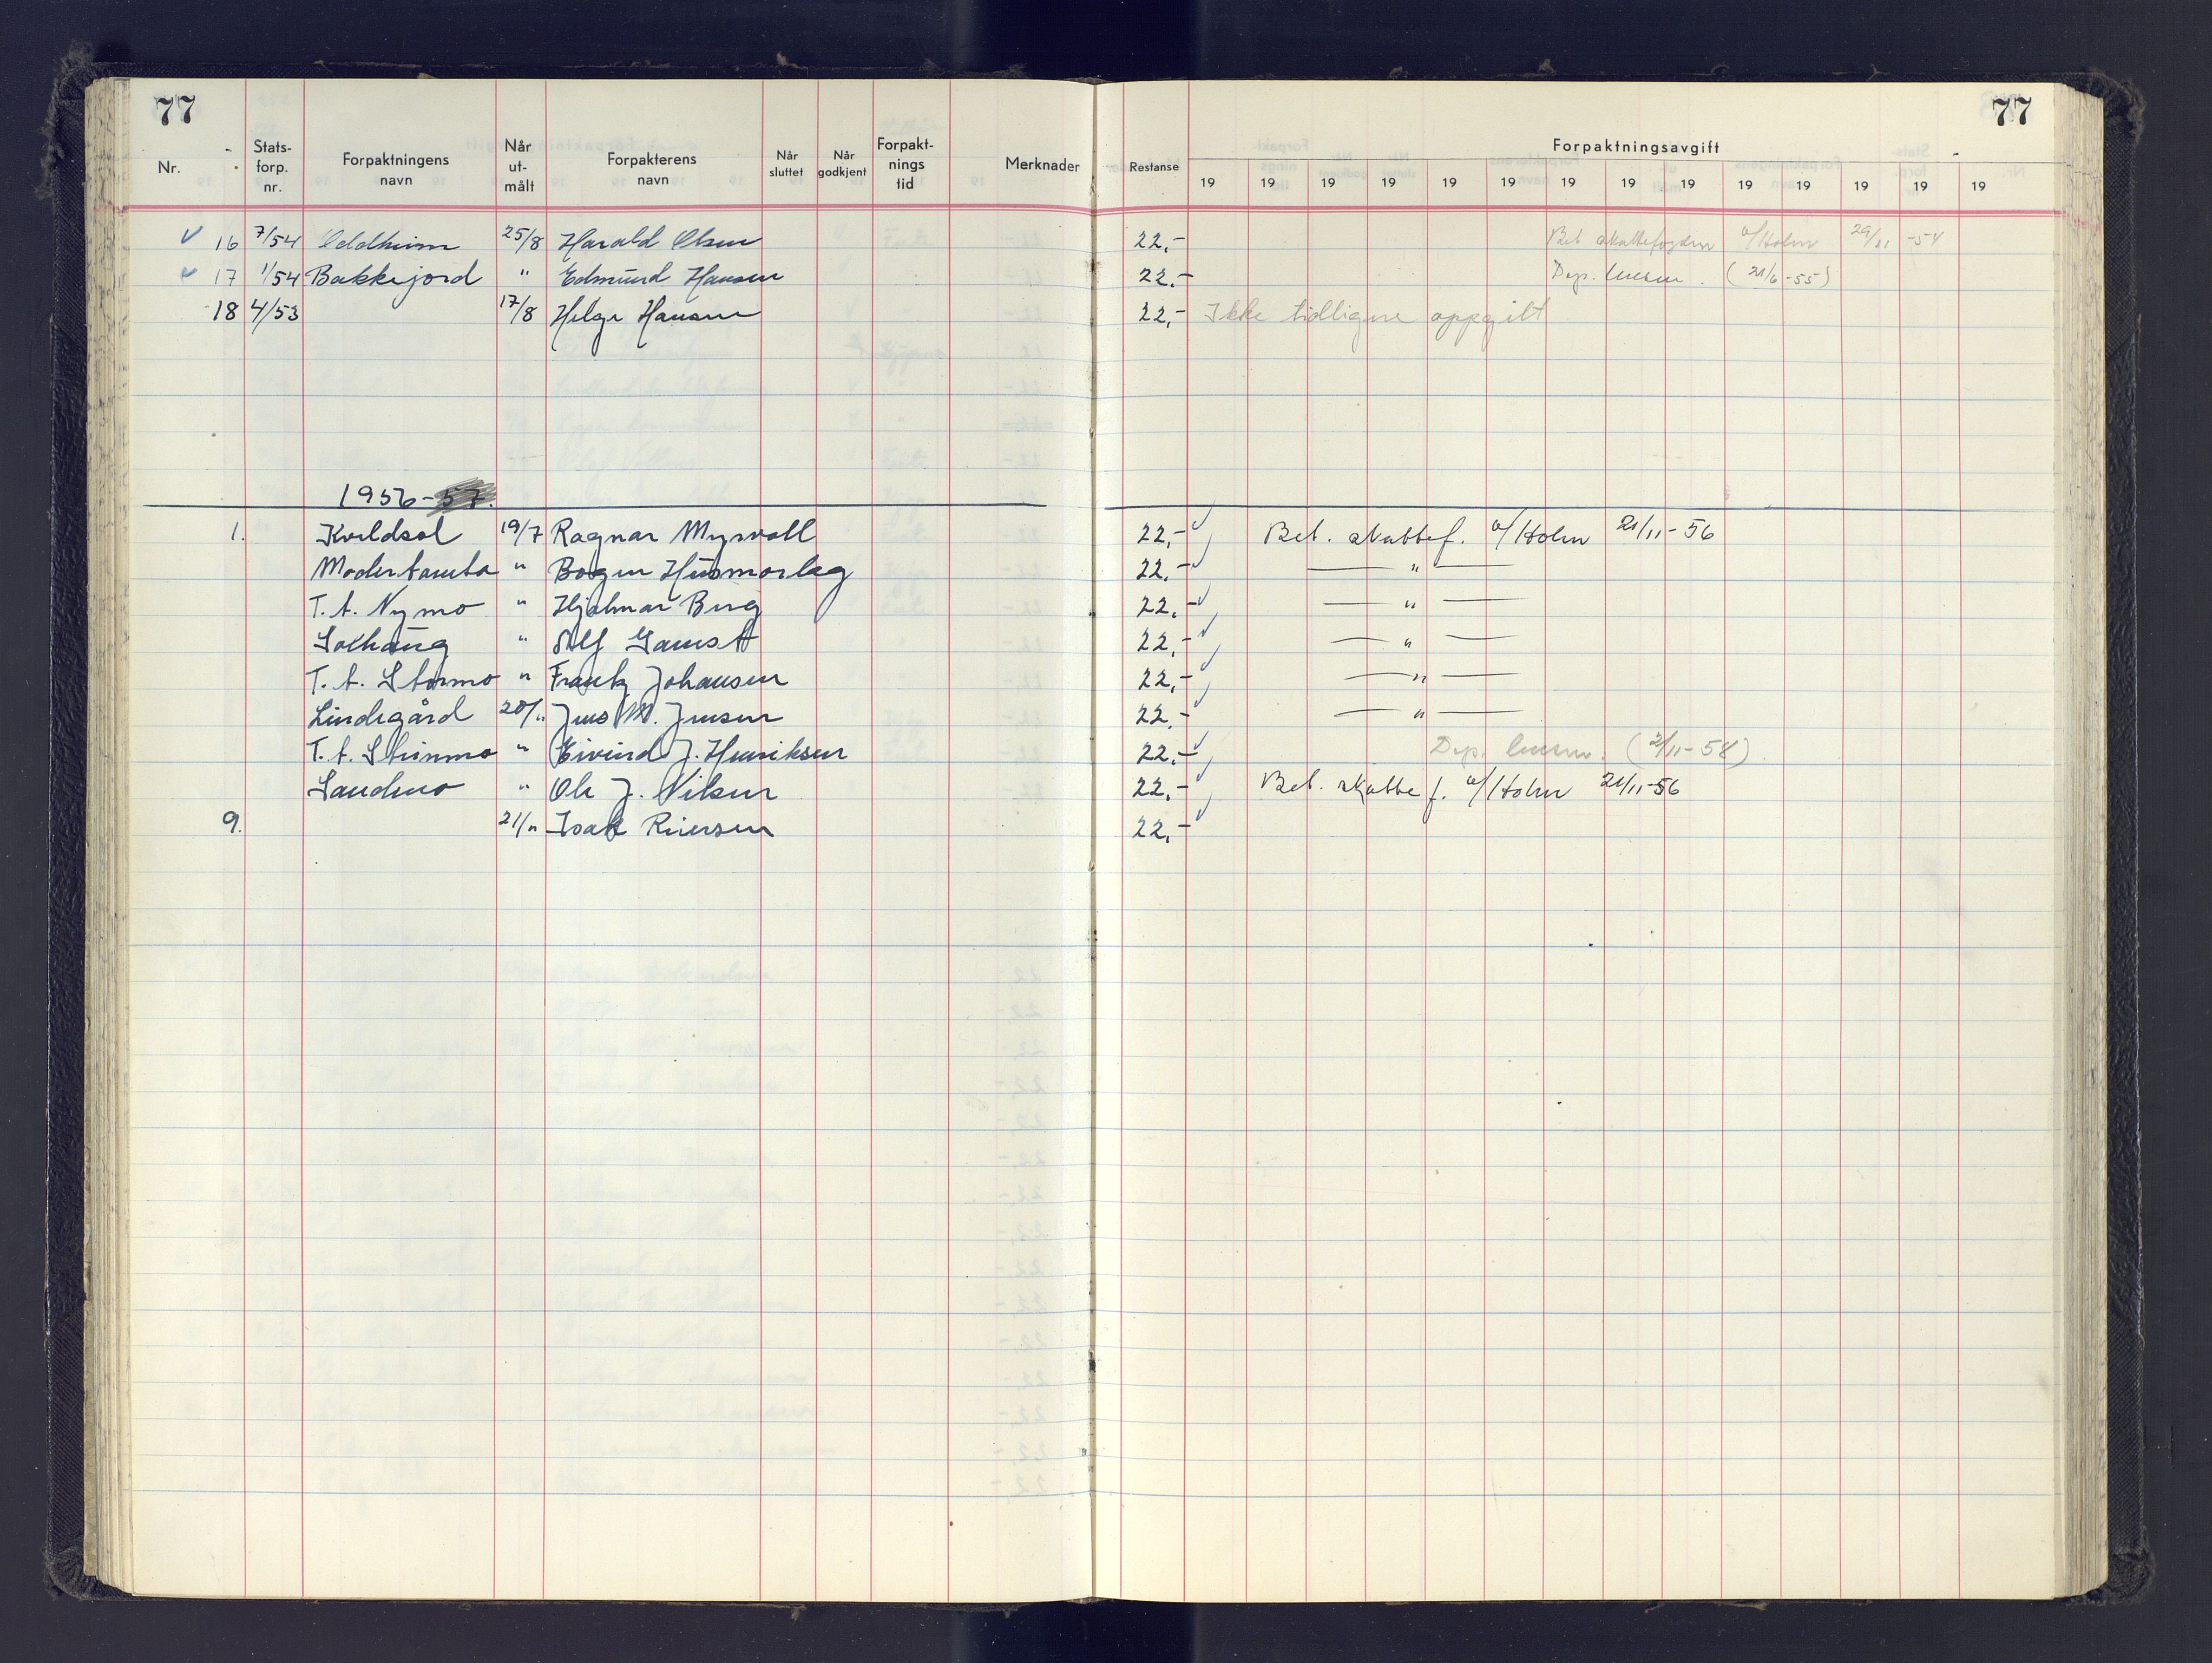 77
77
Nr. Stats-forp. nr. Forpaktningens navn Når ut-målt Forpakterens navn Når sluttet Når godkjent Forpakt-nings tid Merknader Restanse Forpaktningsavgift
19 19 19 19 19 19 19 19 19 19 19 19 19 19
✓ 16 7/54 Oddheim 25/8 Harald Olsen 22,- Bet skattefogden a/Holm 29/11 -54
✓ 17 1/54 Bakkejord " Edmund Hansen 22.- Dep. (21/6-55)
18 4/53 17/8 Helge Hansen 22,- Ikke tidligere oppgitt
1956-57.
1. Kveldsol 19/7 Ragnar Myrvoll 22,- ✓ Bet. skattef. a/Holm 21/11-56
Modertomta " Bogen Husmorlag 22,- ✓ — " —
T. t. Nymo " Hjalmar Berg 22,- ✓ — " —
Solhaug " Alf Gamst 22,- ✓ — " —
T. t. Stormo " Frantz Johansen 22,- ✓ — " —
Lindegård 20/" Jens M. Jensen 22,- ✓ — " —
T. t. Steinmo " Eivind J. Henriksen 22,- ✓ Dep. (2/11-58)
Sandmo " Ole J. Nilsen 22,- ✓ Bet. skattef. a/Holm 21/11-56
9. 21/" Isak Riersen 22,- ✓